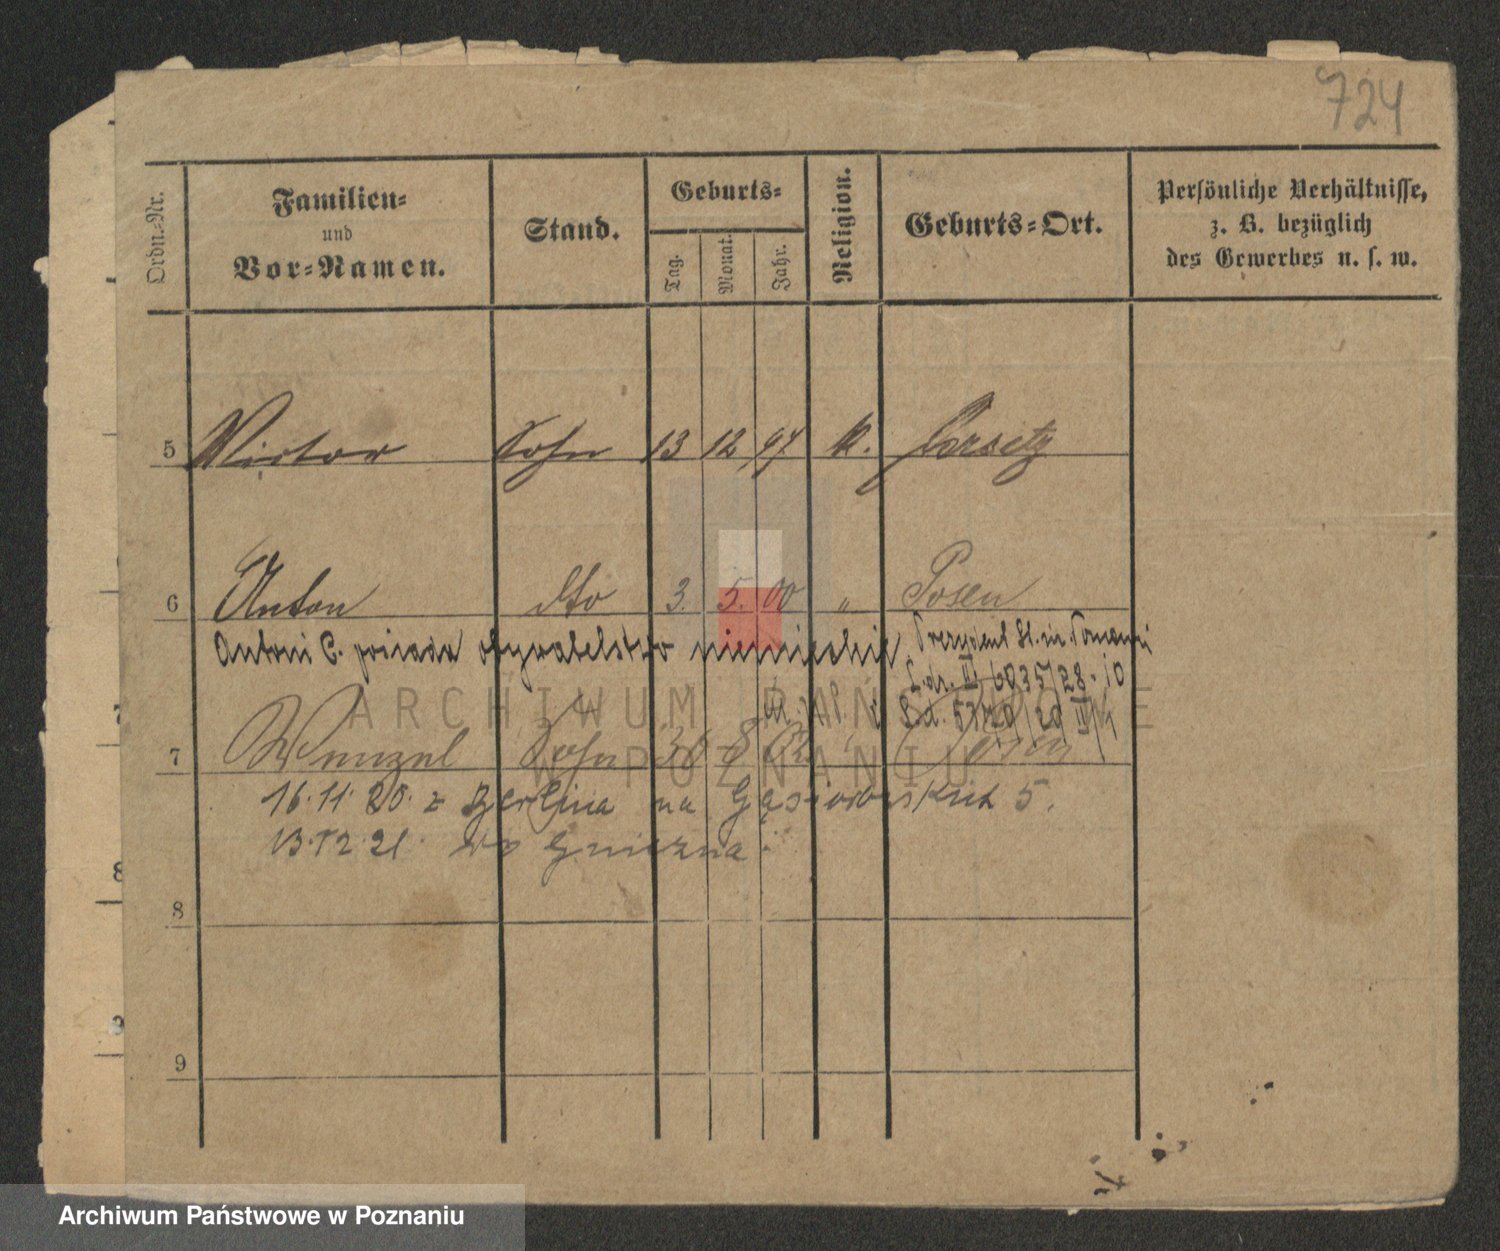 724
Ordn.-Nr.
Familien-
und
Vor-Namen.
Stand.
Geburts-
Tag.
Monat.
Jahr.
Religion.
Geburts-Ort.
Persönliche Verhältnisse,
z. B. bezüglich
des Gewerbes u. s. w.
5 Victor Sohn 13 12 97 k. Jersitz
6 Anton dto 3. 5. 00 " Posen
Antoni C. posiada obywatelstwo niemieckie Prezydent St. m. Poznania
L.dz. II 6035/28.
7 Wenzel Sohn 8 02 Posen
16.11.20. z Berlina na Gąsiorowskich 5.
13.12.21. do Gniezna.
8
9
8
9
ARCHIWUM PAŃSTWOWE
W POZNANIU
Archiwum Państwowe w Poznaniu